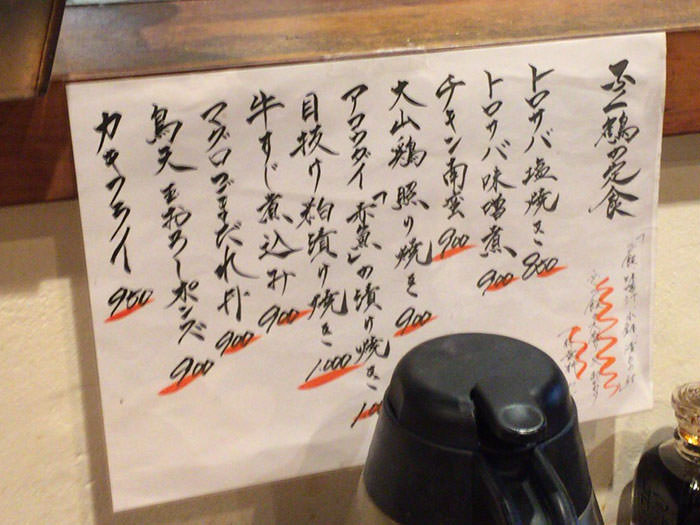 不二鶴の定食
トロサバ塩焼き 850
トロサバ味噌煮 900
チキン南蛮 900
大山鶏照り焼き 900
アコウダイ「赤魚」の漬け焼き
目抜け粕漬け焼き 1,000
牛すじ煮込み 900
マグロごまだれ丼 900
鳥天玉おろしポンズ 900
カキフライ 950